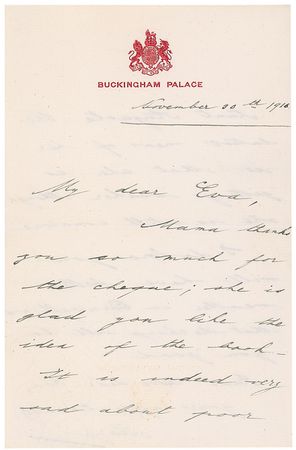 BUCKINGHAM PALACE
November 30th 1916
My dear Eva,
Mama thanks
you so much for
the cheque; she is
glad you like the
idea of the book -
It is indeed very
sad about poor